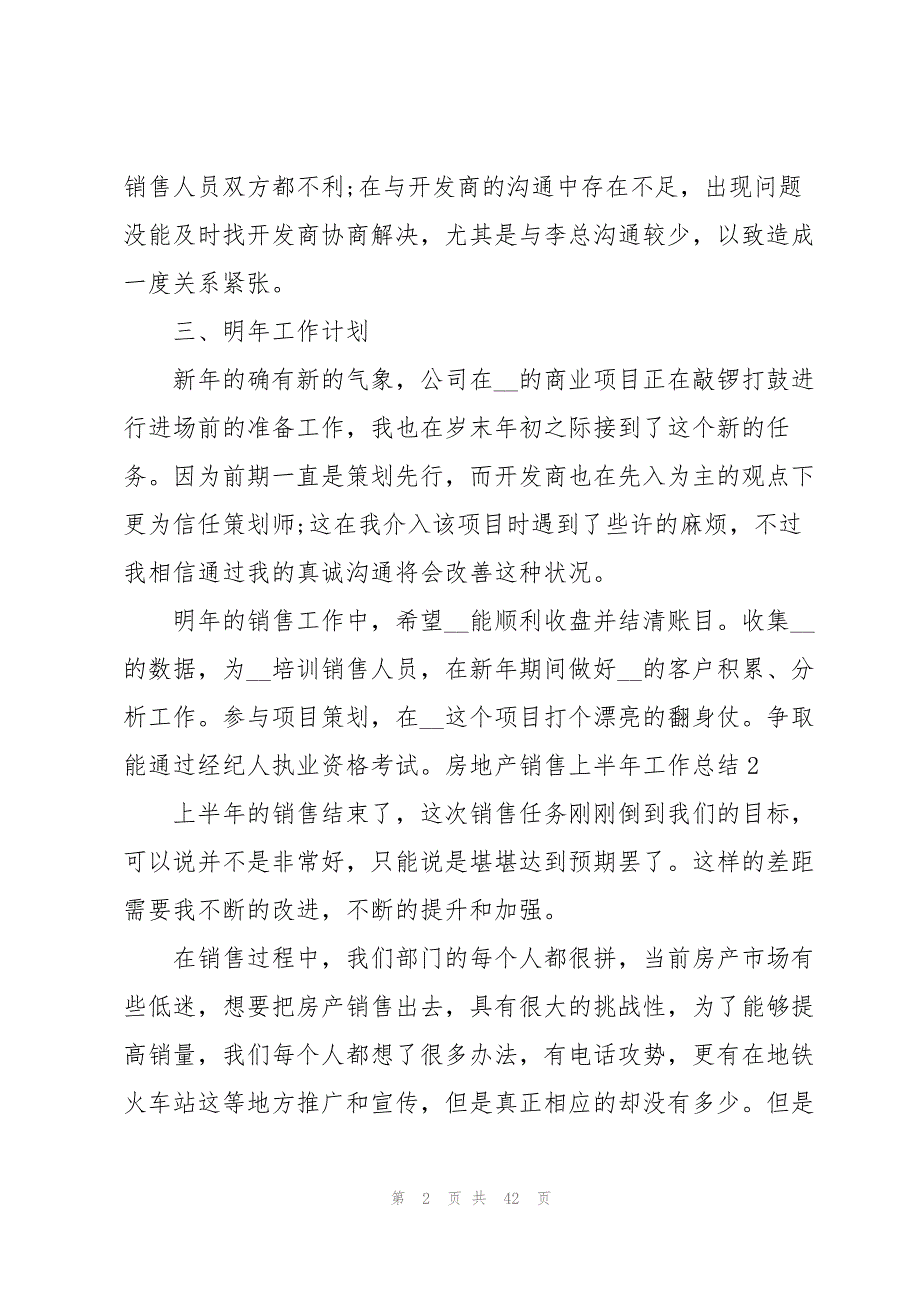 销售人员双方都不利;在与开发商的沟通中存在不足，出现问题
没能及时找开发商协商解决，尤其是与李总沟通较少，以致造成
一度关系紧张。
三、明年工作计划
新年的确有新的气象，公司在__的商业项目正在敲锣打鼓进
行进场前的准备工作，我也在岁末年初之际接到了这个新的任
务。因为前期一直是策划先行，而开发商也在先入为主的观点下
更为信任策划师;这在我介入该项目时遇到了些许的麻烦，不过
我相信通过我的真诚沟通将会改善这种状况。
明年的销售工作中，希望__能顺利收盘并结清账目。收集__
的数据，为__培训销售人员，在新年期间做好__的客户积累、分
析工作。参与项目策划，在__这个项目打个漂亮的翻身仗。争取
能通过经纪人执业资格考试。房地产销售上半年工作总结2
上半年的销售结束了，这次销售任务刚刚倒到我们的目标，
可以说并不是非常好，只能说是堪堪达到预期罢了。这样的差距
需要我不断的改进，不断的提升和加强。
在销售过程中，我们部门的每个人都很拼，当前房产市场有
些低迷，想要把房产销售出去，具有很大的挑战性，为了能够提
高销量，我们每个人都想了很多办法，有电话攻势，更有在地铁
火车站这等地方推广和宣传，但是真正相应的却没有多少。但是
第 2 页 共 42 页